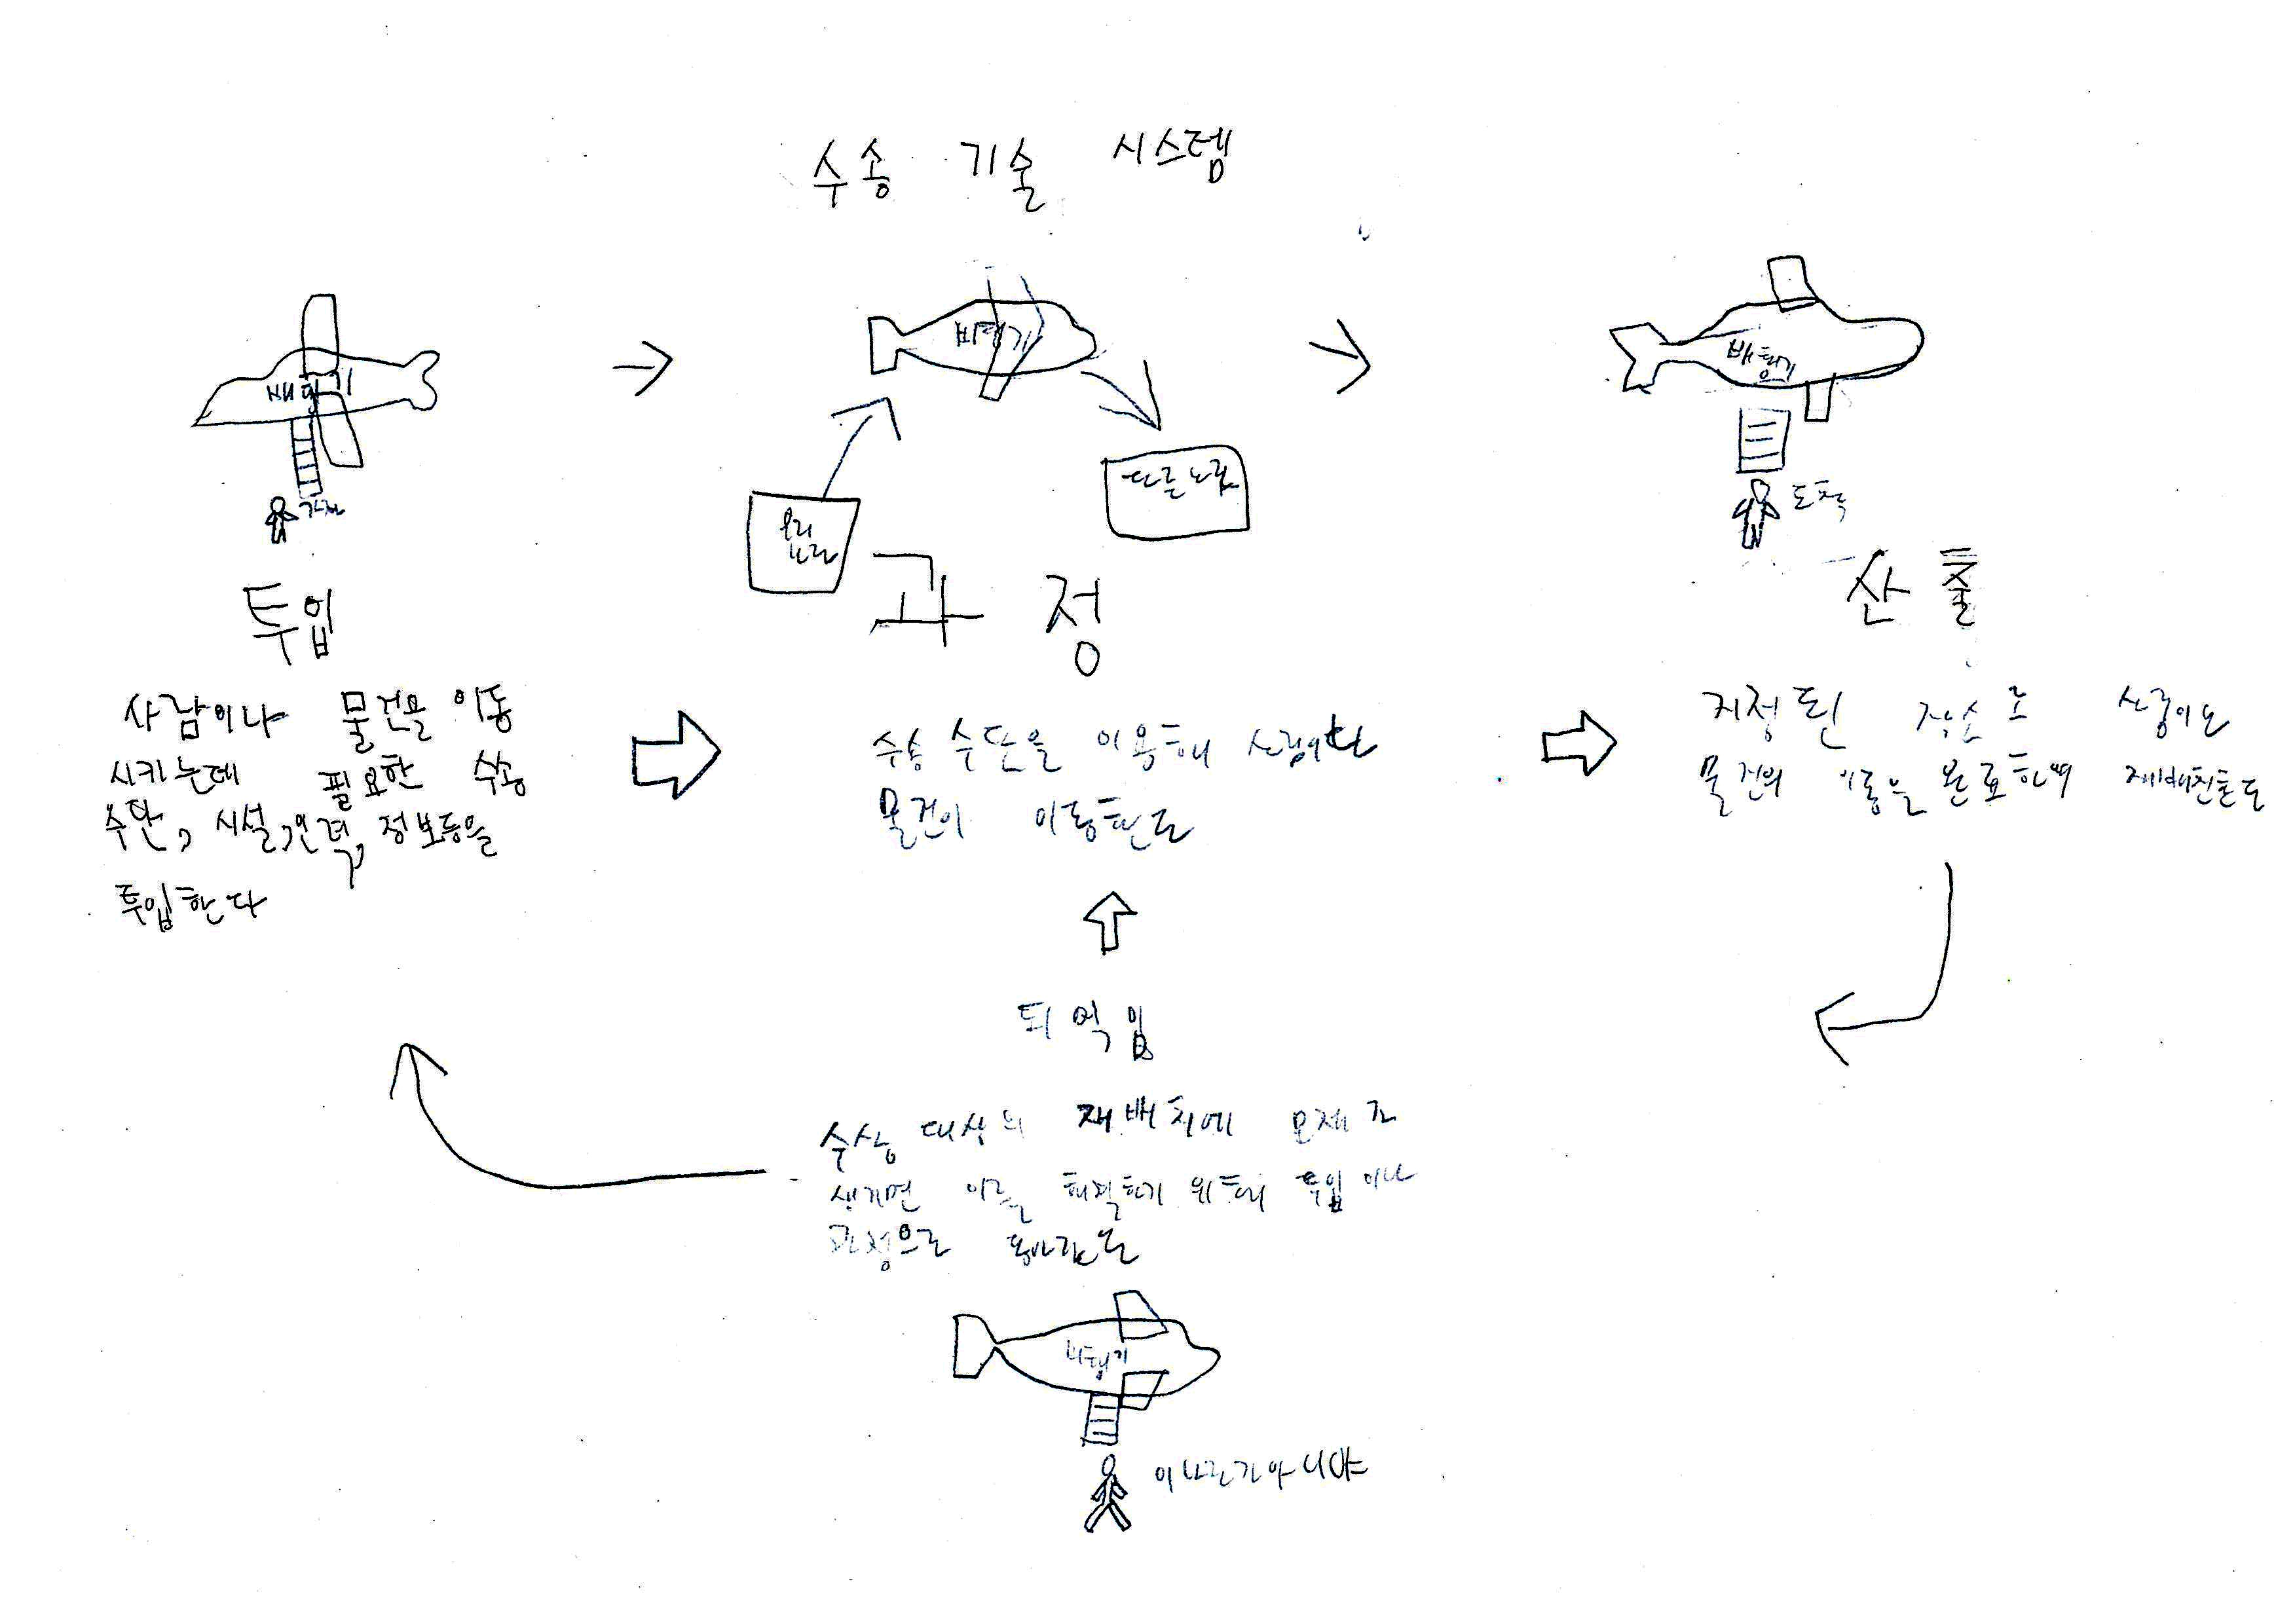 수송 기술 시스템
비행기
비행기
비행기
가자
우리
나라
다른 나라
도착
투입
과정
산출
사람이나 물건을 이동
시키는데 필요한 수송
수단, 시설, 인력, 정보등을
투입한다
수송 수단을 이용해 사람이나
물건이 이동한다
지정된 장소로 사람이나
물건의 이동을 완료하며 재배치한다
되먹임
수송 대상의 재배치에 문제가
생기면 이를 해결하기 위해 투입이나
과정으로 돌아간다
비행기
이나라가아니야